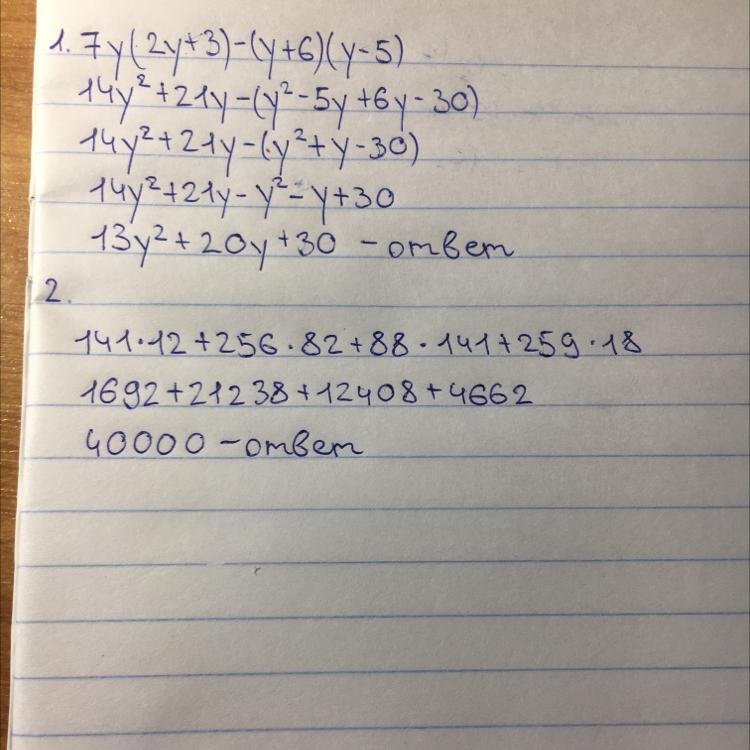 1. 7y(2y+3)-(y+6)(y-5)
14y²+21y-(y²-5y+6y-30)
14y²+21y-(y²+y-30)
14y²+21y-y²-y+30
13y²+20y+30 -ответ
2.
141·12+256·82+88·141+259·18
1692+21238+12408+4662
40000-ответ